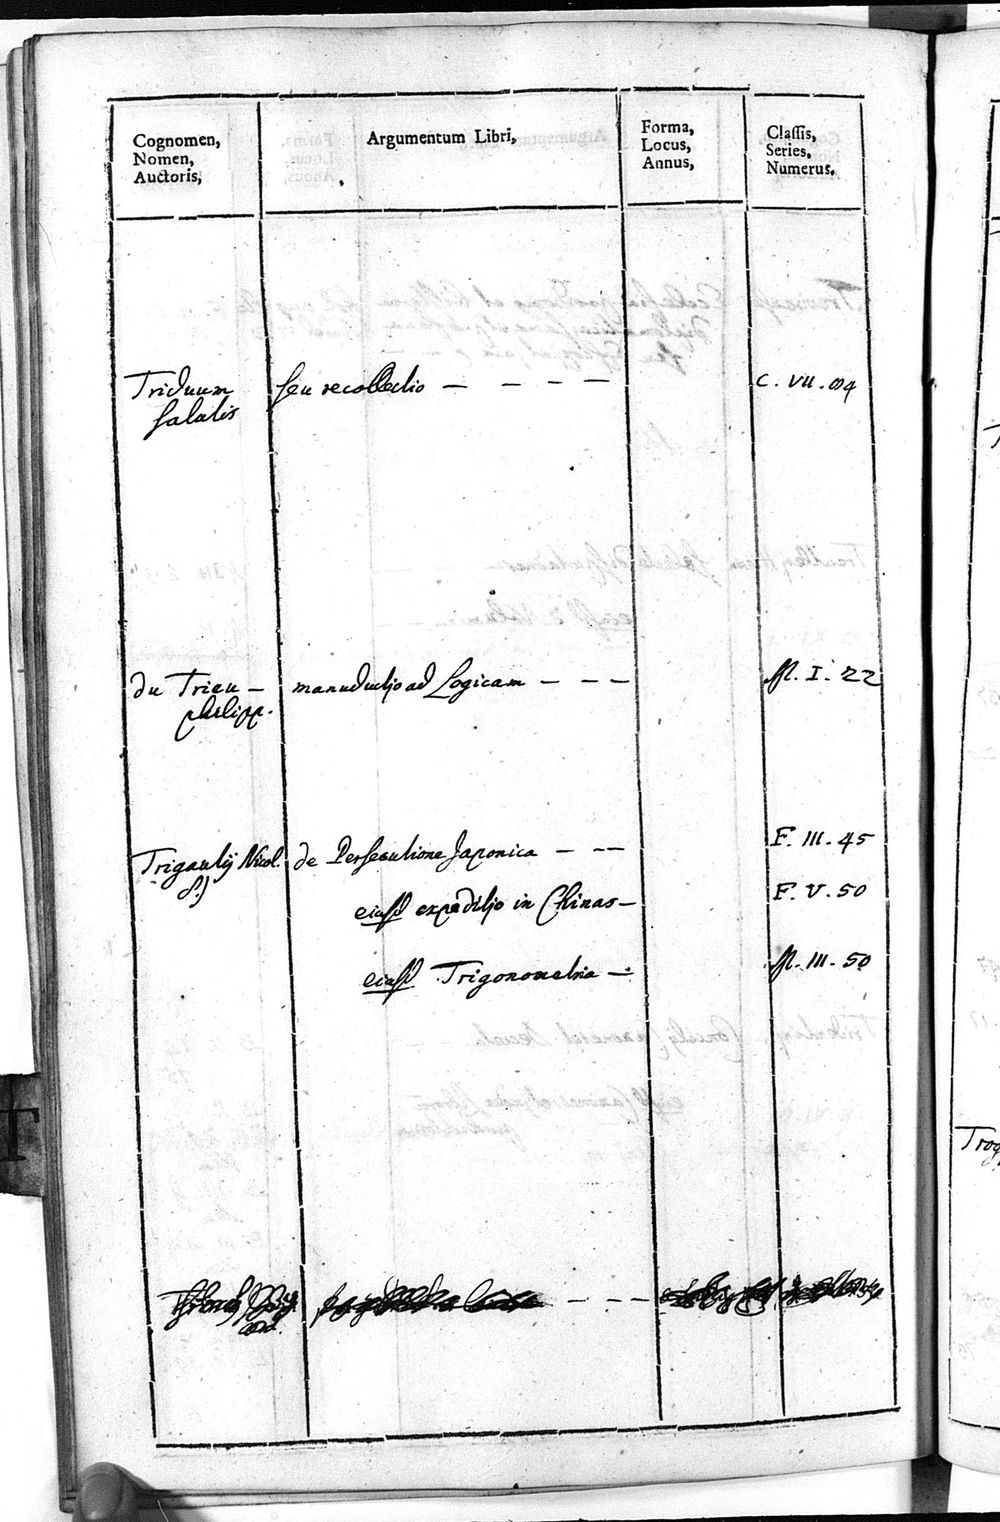 Cognomen,
Nomen,
Auctoris,
Argumentum Libri,
Forma,
Locus,
Annus,
Classis,
Series,
Numerus,
Triduum seu recollectio — — — — C. VII.
salutis
du Trieu — manuductjo ad Logicam — — — M. I. 22
philipp.
Trigautij Nicol. de Persecutione Japonica — — — F. III. 45
eiusd expeditjo in Chinas — F. V. 50
eiusd Trigonometria — M. III. 50
T
Trog